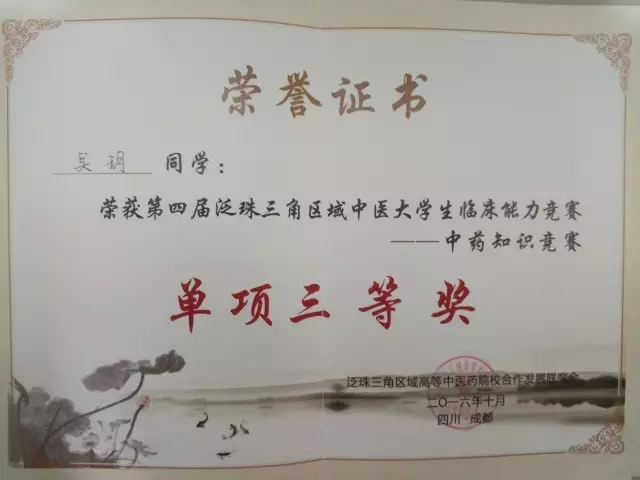 荣誉证书
吴玥 同学：
荣获第四届泛珠三角区域中医大学生临床能力竞赛
——中药知识竞赛
单项三等奖
泛珠三角区域高等中医药院校合作发展联席会
二〇一六年十月
四川·成都